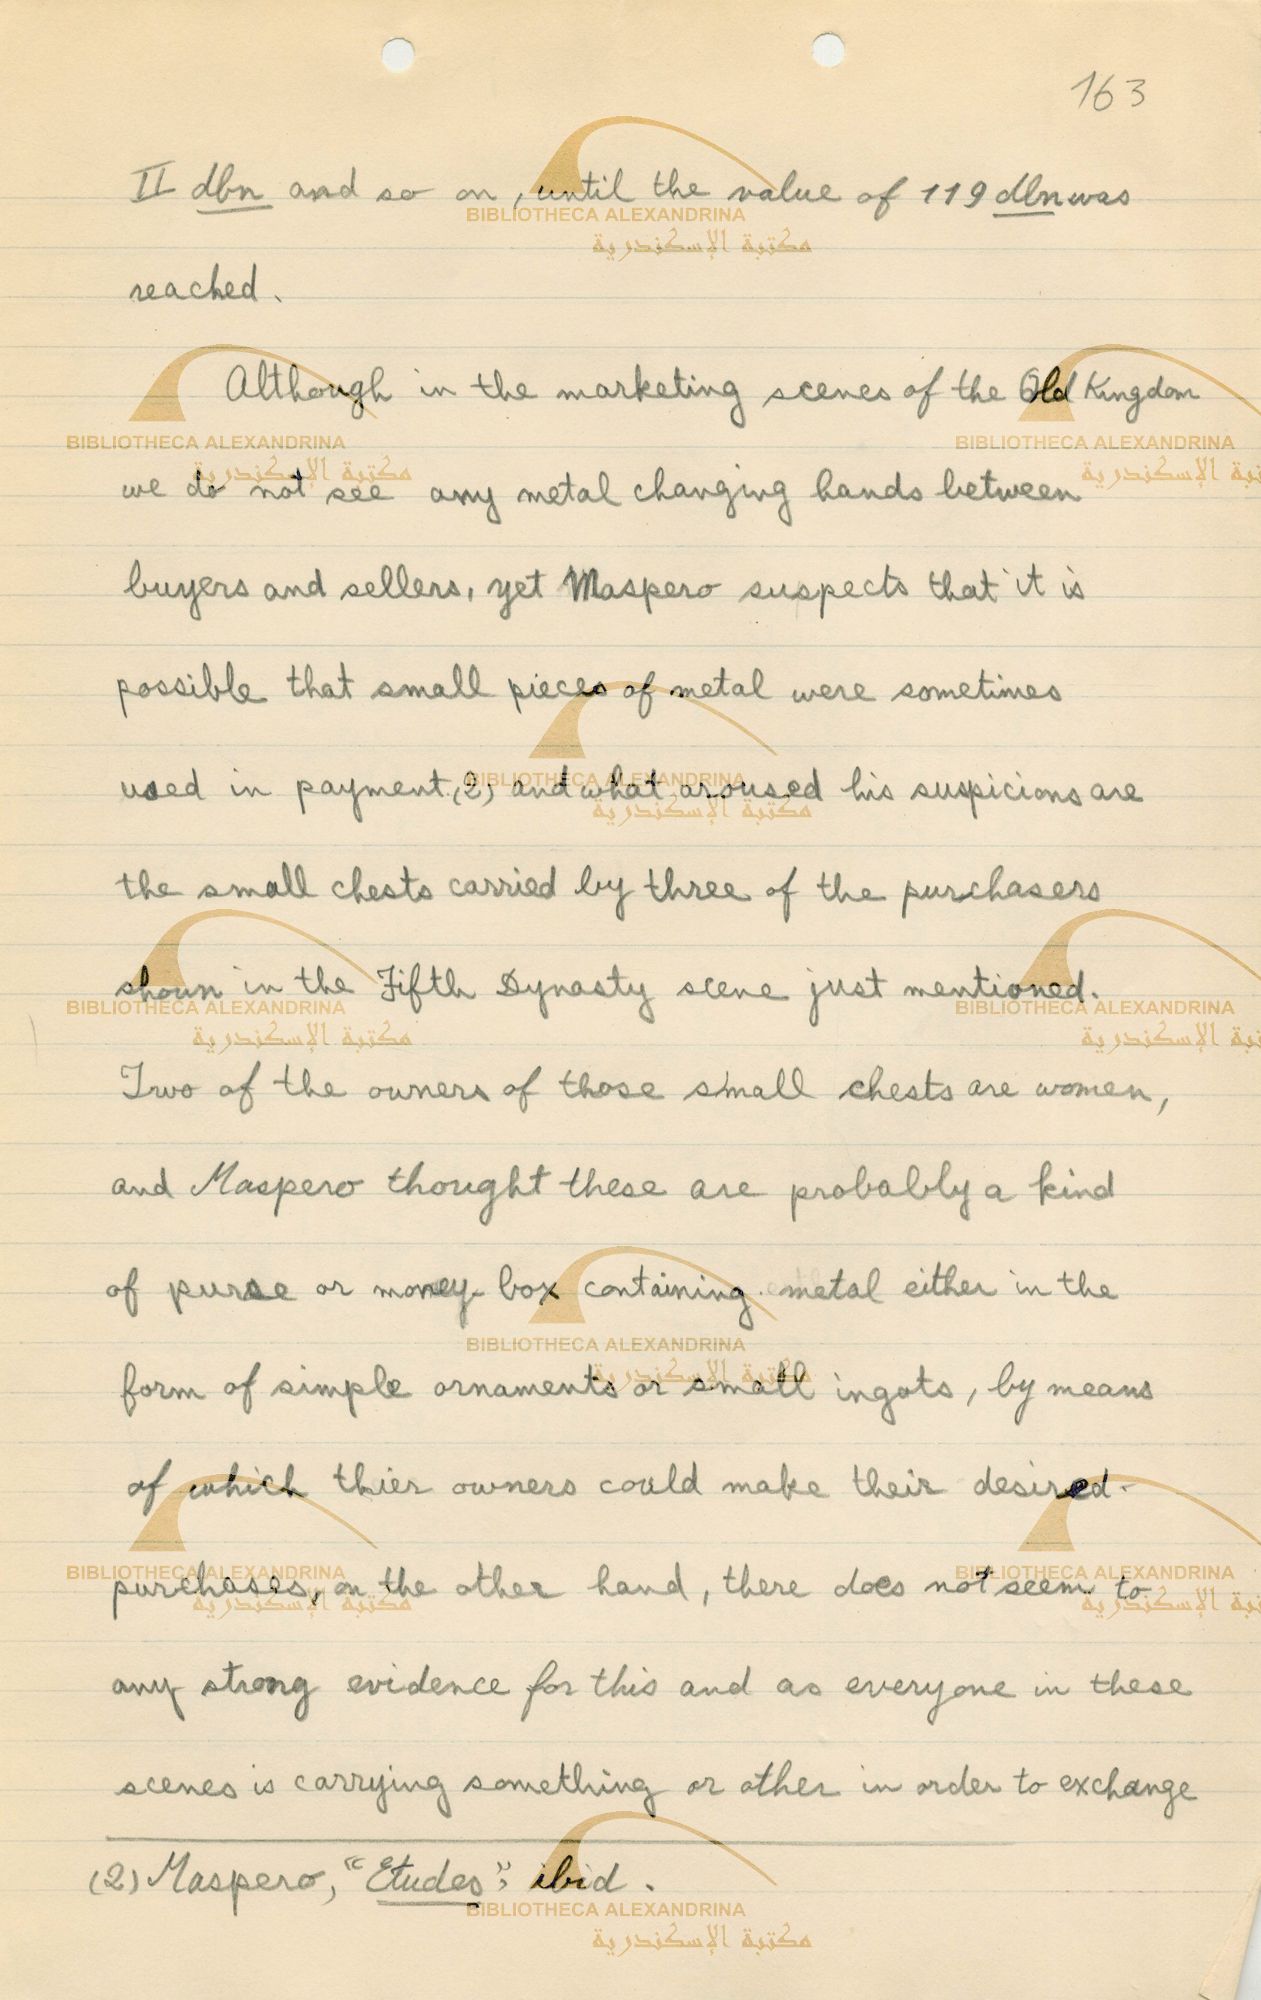 163
II dbn and so on, until the value of 119 dbn was
reached.
Although in the marketing scenes of the Old Kingdom
we do not see any metal changing hands between
buyers and sellers, yet Maspero suspects that it is
possible that small pieces of metal were sometimes
used in payment,(2) and what aroused his suspicions are
the small chests carried by three of the purchasers
shown in the Fifth Dynasty scene just mentioned.
Two of the owners of those small chests are women,
and Maspero thought these are probably a kind
of purse or money-box containing metal either in the
form of simple ornaments or small ingots, by means
of which thier owners could make their desired-
purchases, on the other hand, there does not seem to
any strong evidence for this and as everyone in these
scenes is carrying something or other in order to exchange
(2) Maspero, "Etudes", ibid.
BIBLIOTHECA ALEXANDRINA
مكتبة الإسكندرية